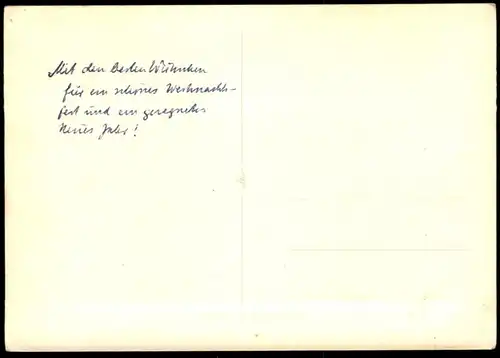 Mit den besten Wünschen
für ein schönes Weihnachts-
fest und ein gesegnetes
Neues Jahr!